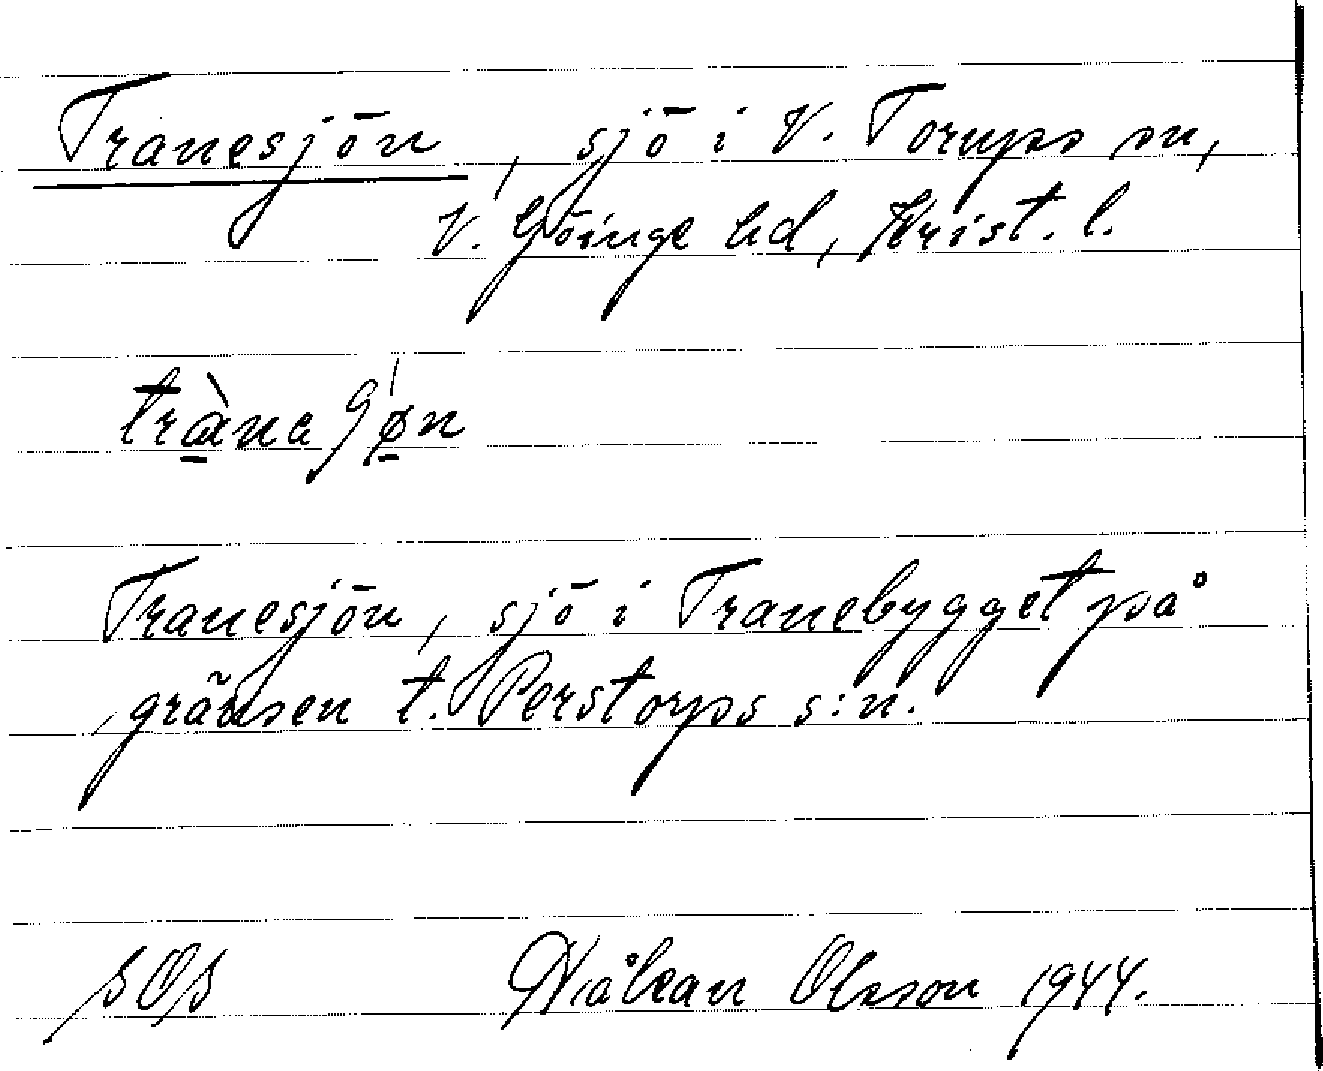 Tranesjön, sjö i V. Torups sn,
V. Göinge hd, Krist. l.
Tranesjön, sjö i Tranebygget på
gränsen t. Perstorps s:n.
SOS Håkan Olsson 1944.